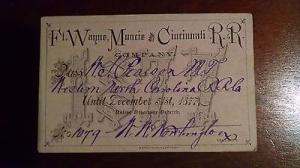 Ft. Wayne, Muncie and Cincinnati R.R.
COMPANY.
Pass W. S. Pearson M.T.
Western North Carolina R.R.
Until December 31st, 1877,
Unless Otherwise Ordered.
No. 1079